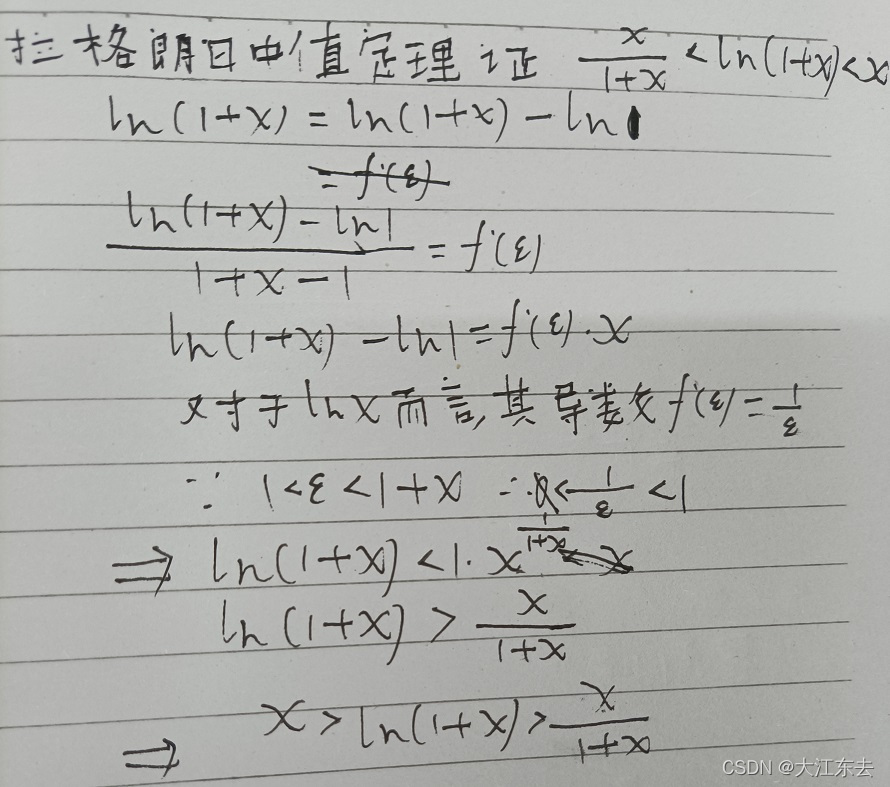 拉格朗日中值定理证 x/(1+x) < ln(1+x) < x
ln(1+x) = ln(1+x) - ln1
= f'(ε)
(ln(1+x) - ln1)/(1+x-1) = f'(ε)
ln(1+x) - ln1 = f'(ε)·x
又对于lnx而言,其导数为f'(ε) = 1/ε
∵ 1<ε<1+x ∴ 1/(x+1) < 1/ε < 1
⇒ ln(1+x) < 1·x
ln(1+x) > x/(1+x)
⇒ x > ln(1+x) > x/(1+x)
CSDN @大江东去